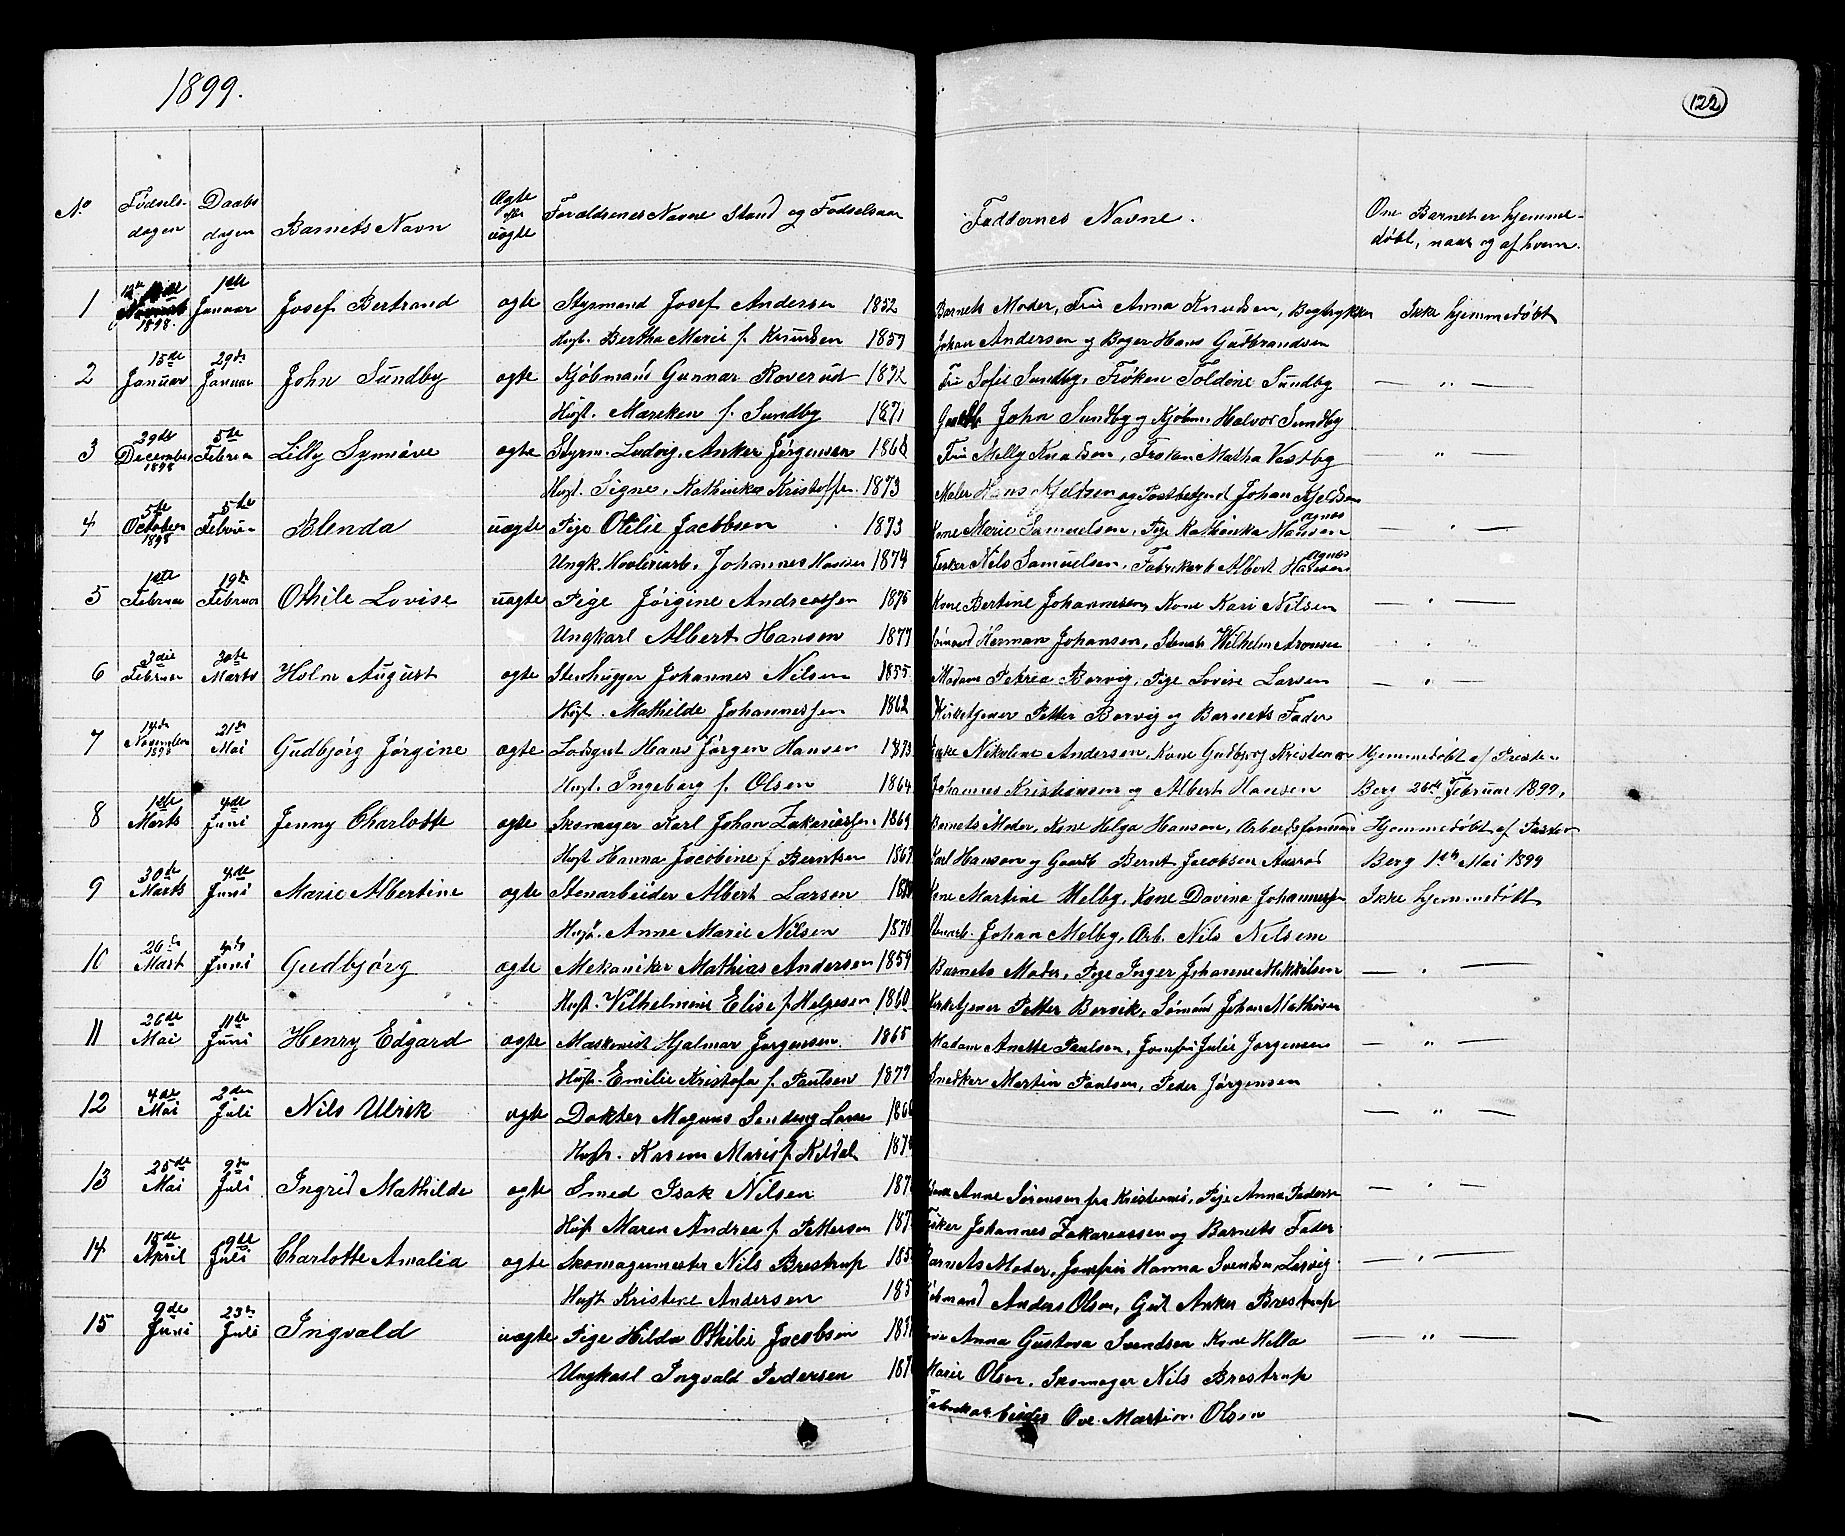 1899.
122
No Fødsels- dagen Daabs dagen Barnets Navn Ægte eller uægte Foraldrenes Navne Stand og Fødselsaar Faddernes Navne. Om Barnet er hjemme- døbt, naar og af hvem.
1 1898. 1ste Januar Josef Bertrand ægte Styrmand Josef Andersen 1852 Barnets Moder, Fru Anna Knudsen, Bogtrykker Ikke hjemmedøbt
Hust. Bertha Marie f. Knudsen 1859 Johan Andersen og Bager Hans Gudbrandsen
2 15de Januar 29de Januar John Sundby ægte Kjøbmand Gunnar Roverud 1872 Fru Sofie Sundby, Frøken Toldine Sundby — „ —
Hust. Mareken f. Sundby 1871 John Sundby og Kjøbm. Halvor Sundby
3 29de December 1898 5te Februar Lilly Synnøve ægte Styrm. Ludvig Anker Jørgensen 1866 Fru Melly Knudsen, Frøken Matha Vestby — „ —
Hust. Signe, Kathinka Kristoffer. 1873 Maler Hans Kjeldsen og Postbetjent Johan Kjeldsen
4 5te October 1898 5te Februar Blenda uægte Pige Otilie Jacobsen 1873 Kone Marie Samuelsen, Pige Kathinka Hansen Agnes — „ —
Ungk. Høvleriarb. Johannes Hansen 1874 Fisker Nils Samuelsen, Fabrikarb. Albert Hansen Agnes
5 1ste Februar 19de Februar Othile Lovise uægte Pige Jørgine Andreassen 1875 Kone Bertine Johannesen, Kone Kari Nilsen — „ —
Ungkarl Albert Hansen 1877 Sømand Herman Johansen, Stenh. Wilhelm Aronsen
6 3die Februar 30te Marts Holm August ægte Stenhugger Johannes Nilsen 1855 Madam Petrea Borvig, Pige Lovise Larsen — „ —
Hust. Mathilde Johannessen 1862 Kirketjener Petter Borvig og Barnets Fader
7 14de November 1898 21de Mai Gudbjørg Jørgine ægte Hans Jørgen Hansen 1873 Nikoline Andersen, Kone Gudbjørg Kristensen Hjemmedøbt af Presten
Hust. Ingeborg f. Olsen 1864 Johannes Kristiansen og Albert Hansen Berg 26de Februar 1899.
8 1ste Marts 4de Juni Jenny Charlotte ægte Skomager Karl Johan Zakariassen 1869 Barnets Moder, Kone Helga Hansen, Arbeidsformand Hjemmedøbt af Pastor
Hust Hanna Jacobine f. Berntsen 1867 Karl Hansen og Gaardb Bernt Jacobsen Aarød Berg 1ste Mai 1899
9 30te Marts 4de Juni Marie Albertine ægte Stenarbeider Albert Larsen Kone Martine Melby, Kone Davina Johannessen Ikke hjemmedøbt
Hust. Anne Marie Nilsen 1870 Stenarb. Johan Melby, Arb. Nils Nilsen
10 26de Mart 4de Juni Gudbjørg ægte Mekaniker Mathias Andersen 1859 Barnets Moder, Pige Inger Johanne Mikkelsen — „ —
Hust. Vilhelmine Elise f. Helgesen 1860 Kirketjener Petter Borvik, Sømand Johan Mathisen
11 26de Mai 11te Juni Henry Edgard ægte Maskenist Hjalmar Jørgensen 1865 Madam Anette Paulsen, Jomfru Julie Jørgensen — „ —
Hust. Emilie Kristofa f. Paulsen 1877 Snedker Martin Paulsen, Peder Jørgensen
12 4de Mai 2den Juli Nils Ulrik ægte Dokter Magnus Sendeng Larsen 186 — „ —
Hust. Karen Marie f. Keldal 187
13 25de Mai 9de Juli Ingrid Mathilde ægte Smed Isak Nilsen 187 Kone Anne Sørensen fra Kristiansø, Pige Anna Pedersen — „ —
Hust Maren Andrea f. Pettersen 187 Fisker Johannes Zakariassen og Barnets Fader
14 15de April 9de Juli Charlotte Amalia ægte Skomagermester Nils Brestrup 185 Barnets Moder, Jomfru Hanna Svendsen, Larvig — „ —
Hust Kristine Andersen 185 Kjøbmand Anders Olsen, Gut Anker Brestrup
15 9de Juni 23de Juli Ingvald uægte Pige Hilda Othilie Jacobsen 187 Kone Anna Gustava Svendsen Kone Hella — „ —
Ungkarl Ingvald Pedersen 187 Marie Olsen, Skomager Nils Brestrup
Fabrikarbeider Ove Martin Olsen